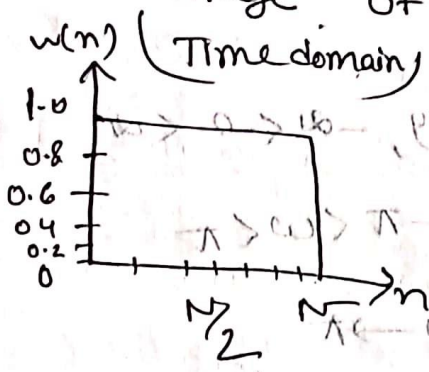 of
w(n) (Time domain)
1.0
0.8
0.6
0.4
0.2
0
N/2 N n